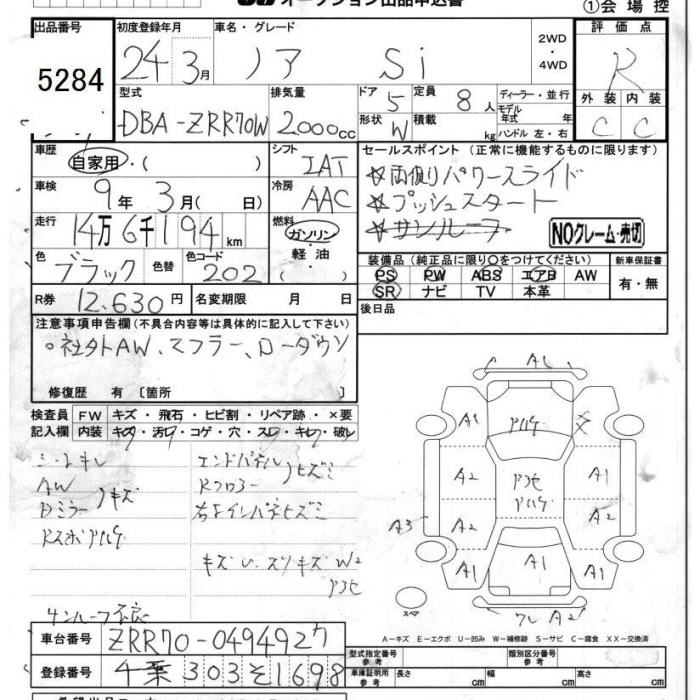 オークション出品申込書
①会場控
出品番号 初度登録年月 車名・グレード 2WD・4WD 評価点
5284 24年3月 ノア Si R
型式 排気量 ドア 5 定員 8人 ディーラー・並行
外装 内装
DBA-ZRR70W 2000cc 形状 W 積載 kg モデル年式 年
ハンドル 左・右
C C
車歴 自家用・( ) シフト IAT セールスポイント (正常に機能するものに限ります)
車検 9年3月( 日) 冷房 AAC ☆両側パワースライド
☆プッシュスタート
走行 14万6千194km 燃料 ガソリン・軽油・( ) ☆サンルーフ
NOクレーム・売切
色 ブラック 色替 色コード 202 装備品 (純正品に限り○をつけてください) 新車保証書
PS PW ABS エアB AW 有・無
SR ナビ TV 本革
R券 12,630円 名変期限 月 日 後日品
注意事項申告欄 (不具合内容等は具体的に記入して下さい)
○社外AW、マフラー、ローダウン
修復歴 有 〔箇所
検査員記入欄 FW キズ・飛石・ヒビ割・リペア跡・×要
内装 キズ・汚レ・コゲ・穴・スレ・キレ・破レ
シートキレ
AW
Dミラー〉キズ
エンドパネル
ヒズミ
キズ U スリキズ W2
サンルーフ不良
A1
A1
A2 A1
A3 A2 A2
A1 A1 A1
スペア
A2
A-キズ E-エクボ U-凹み W-補修跡 S-サビ C-腐食 XX-交換済
車台番号 ZRR70-0494927 型式指定番号 参考 類別区分番号 参考
登録番号 千葉 303 そ 1698 車庫証明用 参考 長さ cm 幅 cm 高さ cm